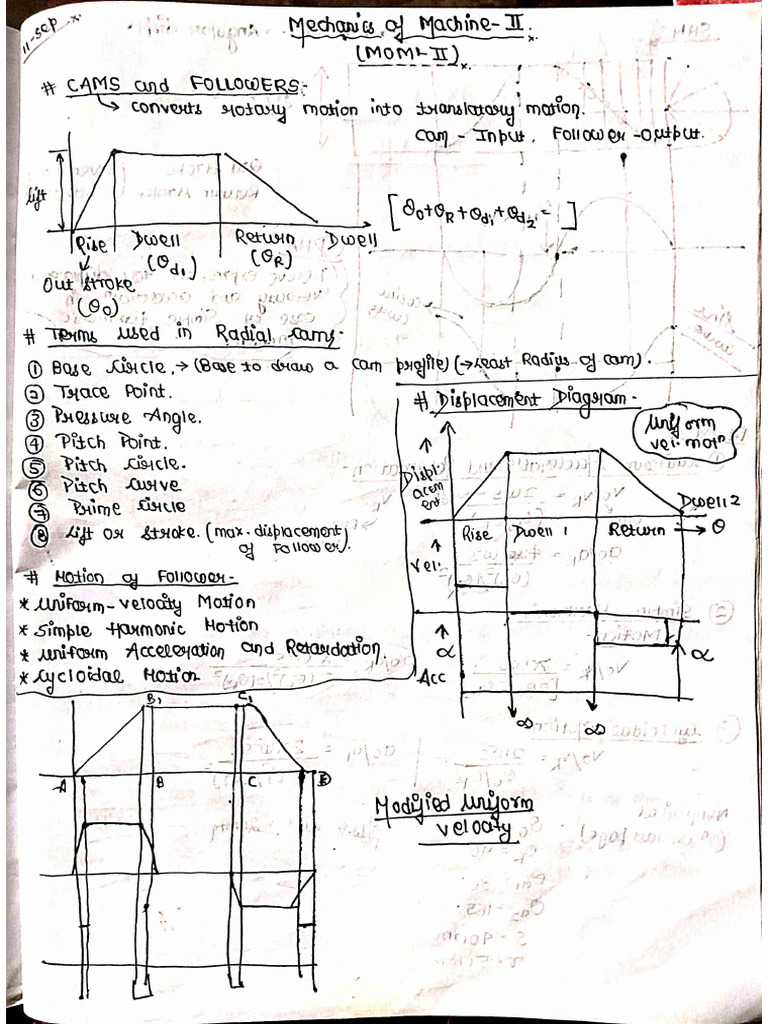 11-sep
Mechanics of Machine-II
(MOM-II)
# CAMS and FOLLOWERS:-
→ converts rotary motion into translatory motion.
Cam - Input, Follower - Output.
Lift
[θ0+θR+θd1+θd2 = ]
Rise Dwell Return Dwell
(θd1) (θR)
Out stroke
(θ0)
# Terms used in Radial cams:-
① Base Circle, → (Base to draw a cam profile) (→ Least Radius of cam).
② Trace Point.
③ Pressure Angle.
④ Pitch Point.
⑤ Pitch Circle.
⑥ Pitch Curve
⑦ Prime Circle
⑧ Lift or Stroke. (max. displacement
of Follower).
# Motion of Follower:-
* Uniform-velocity Motion
* Simple Harmonic Motion
* Uniform Acceleration and Retardation.
* Cycloidal Motion
# Displacement Diagram:-
Uniform
vel. motn
Displ
acem
ent
Dwell 2
Rise Dwell 1 Return → θ
vel.
α
Acc
α
∞ ∞
B1 C1
A B C D
Modified Uniform
velocity